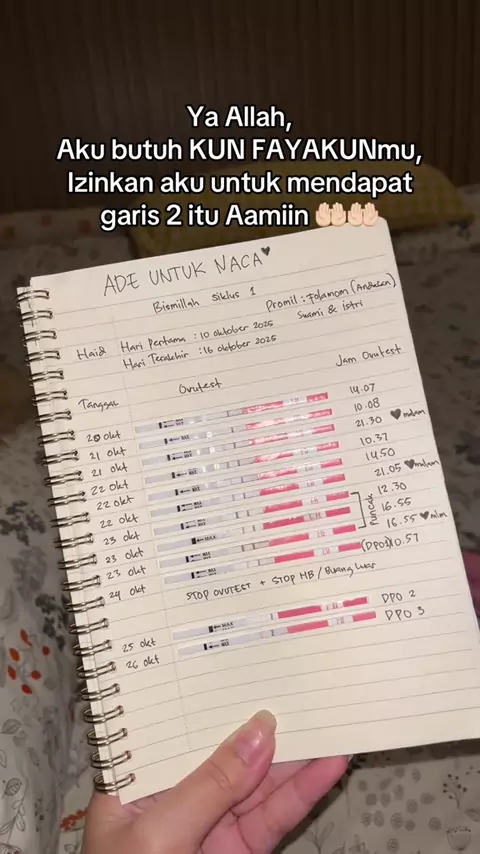 Ya Allah,
Aku butuh KUN FAYAKUNmu,
Izinkan aku untuk mendapat
garis 2 itu Aamiin 🤲🏻🤲🏻
ADE UNTUK NACA ♥
Bismillah Siklus 1
Promil : Folamom (Andalan)
Swami & istri
Haid
Hari Pertama : 10 oktober 2025
Hari Terakhir : 16 oktober 2025
Tanggal Ovutest Jam Ovutest
20 okt 14.07
21 okt 10.08
21 okt 21.30 ♥ malam
22 okt 10.37
22 okt 14.50
22 okt 21.05 ♥ malam
23 okt 12.30
23 okt 16.55
23 okt 16.55 ♥ mlm
Puncak
24 okt (DPO1) 10.57
STOP OVUTEST + STOP HB / Buang luar
25 okt MAX DPO 2
26 okt MAX DPO 3